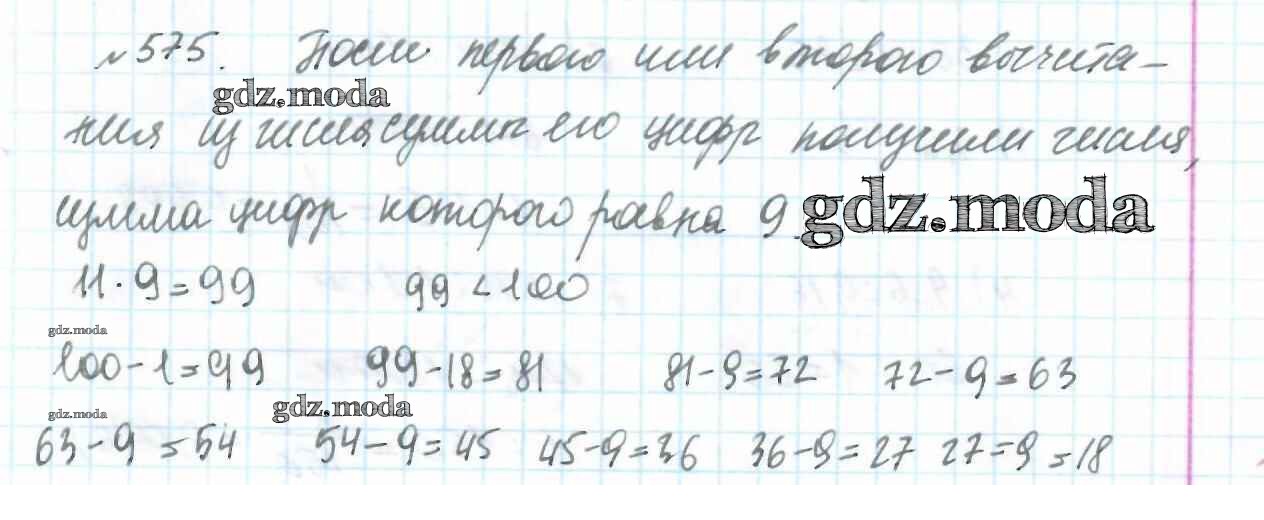 №575. После первого или второго вычита-
gdz.moda
ния из числа суммы его цифр получили числа,
сумма цифр которого равна 9 gdz.moda
11·9=99 99<100
gdz.moda
100-1=99 99-18=81 81-9=72 72-9=63
gdz.moda gdz.moda
63-9=54 54-9=45 45-9=36 36-9=27 27-9=18